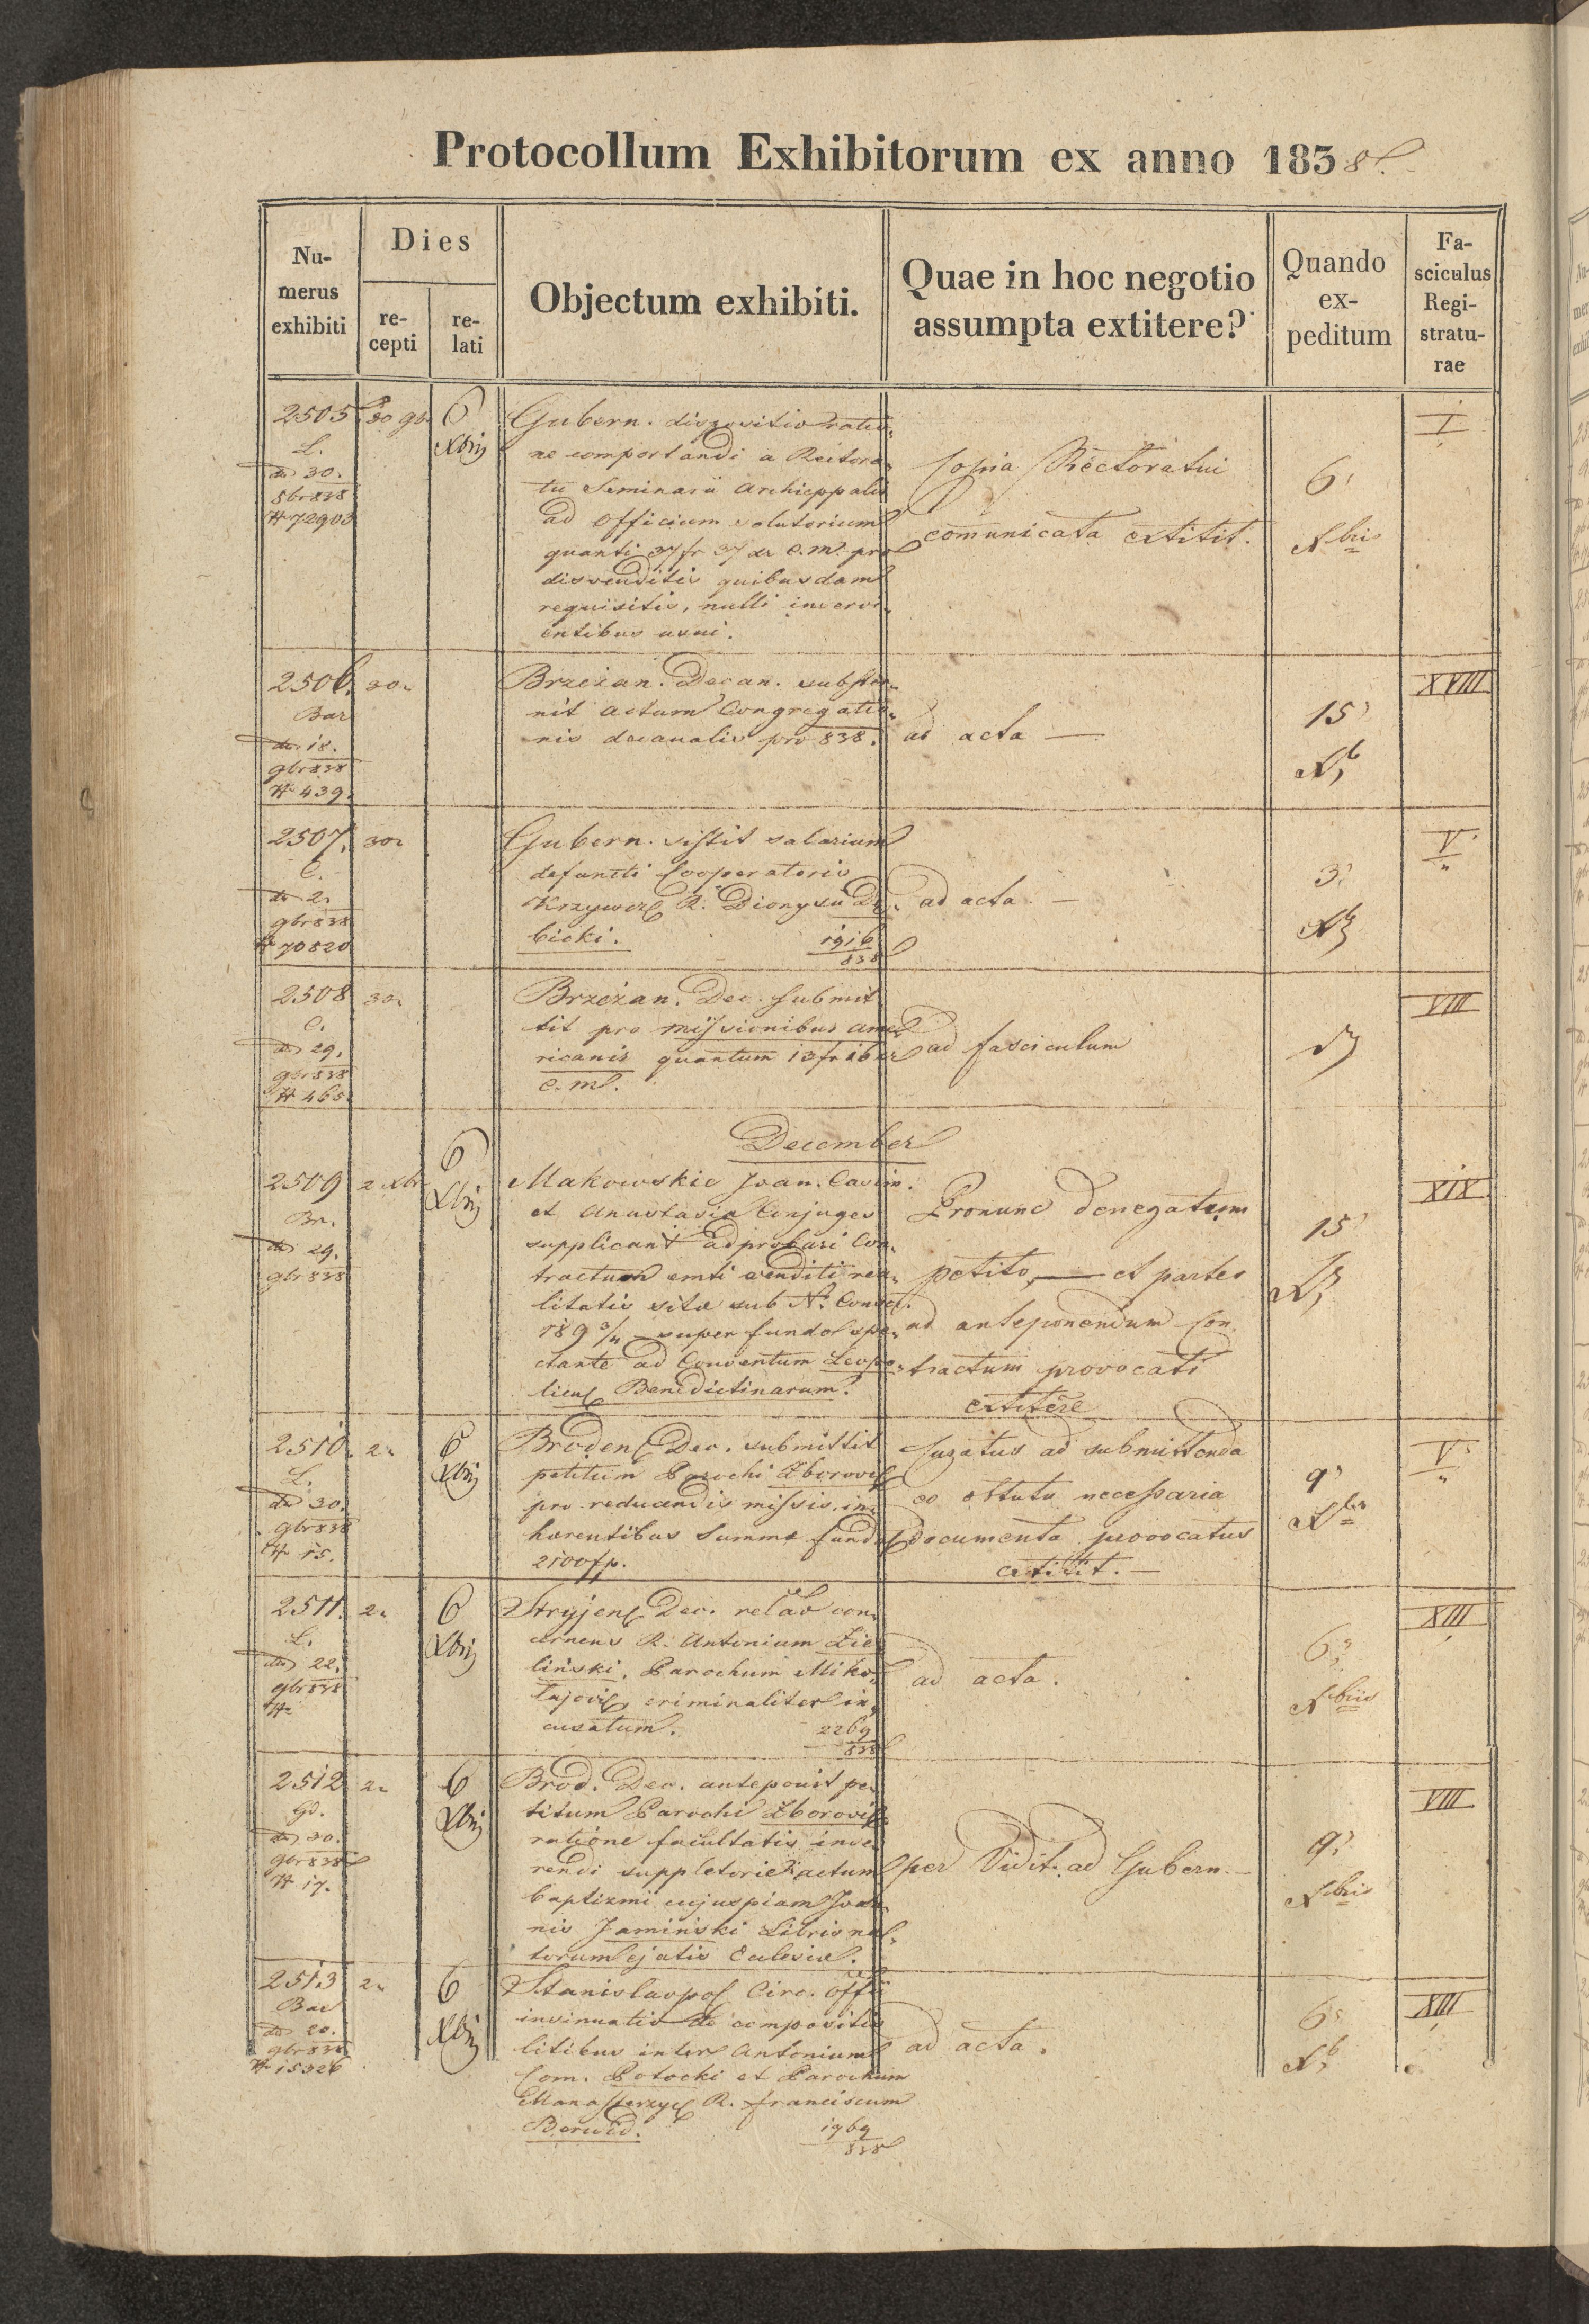 Protocollum Exhibitorum ex anno 1838.
Numerus exhibiti
Dies
recepti
relati
Objectum exhibiti.
Quae in hoc negotio assumpta extitere?
Quando expeditum
Fasciculus Registraturae
2505
L.
dto 30.
8br 838
# 72903
30 9b.
6
Xbris
Gubern. dispositio ratio-
ne comportandi a Rectora-
tu Seminarii Archieppalis
ad officium solutorium
quanti 37 fr 37 xr C.m. pro
disvenditis quibusdam
requisitis, nulli inservi-
entibus usui.
Copia Rectoratui
comunicata extitit.
6
Xbris
I
2506.
Bar
dto 18.
9br 838
# 439.
30.
Brzeżan. Decan. subster-
nit actum Congregatio-
nis decanalis pro 838.
ad acta —
15
Xb
XVIII
2507.
C.
dto 2.
9br 838
# 70820
30.
Gubern. sistit salarium
defuncti Cooperatoris
Krzywcz. R. Dionysii Dę-
bicki.
1916
838
ad acta. —
3.
Xb
V.
2508
C.
dto 29.
9br 838
# 465.
30.
Brzeżan. Dec. submit-
tit pro missionibus ame-
ricanis quantum 13 fr 16 xr
C.m.
ad fasciculum
VIII
December
2509
Br.
dto 29.
9br 838
2 Xbr
6
Xbris
Makowskie Joan. Casim.
et Anastasia Conjuges
supplicant adprobari Con-
tractum emti venditi rea-
litatis sitæ sub No. Conscr.
189 3/4 — super fundo spe-
ctante ad Conventum Leopo-
liens Benedictinarum.
Pronunc denegatum
petito, — et partes
ad anteponendum Con-
tractum provocati
extitere
15
Xb
XIX
2510.
L.
dto 30.
9br 838
# 15.
2.
6
Xbris
Brodens. Dec. submittit
petitum Parochi Zborovs
pro reducendis missis in-
hærentibus Summæ funds
2100 fp.
Curatus ad submittenda
eo ostutu necessaria
documenta provocatus
extitit. —
9
Xbris
V.
2511.
L.
dto 22.
9br 838
#
2.
6
Xbris
Stryjens. Dec. relao con-
cernens R. Antonium Zie-
liński, Parochum Miko-
łajovs, criminaliter in-
cusatum.
2269
838
ad acta.
6.
Xbris
XIII
2512
Gd.
dto 30.
9br 838
# 17.
2.
6
Xbris
Brod. Dec. anteponit pe-
titum Parochi Zborovs
ratione facultatis inse-
rendi suppletorie actum
baptizmi cujuspiam Joan-
nis Jamiński Libris na-
torum ejatis Ecclesiæ.
per Vidit. ad Gubern. —
9.
Xbris
VIII
2513
Bar
dto 20.
9br 838
# 15326
2.
6
Xbris
Stanislaopos Circ. Offii
insinuatio de compositis
litibus inter Antonium
Com. Potocki et Parochum
Manasterzyc R. Franciscum
Berwid.
1969
838
ad acta.
6.
Xb
XIII